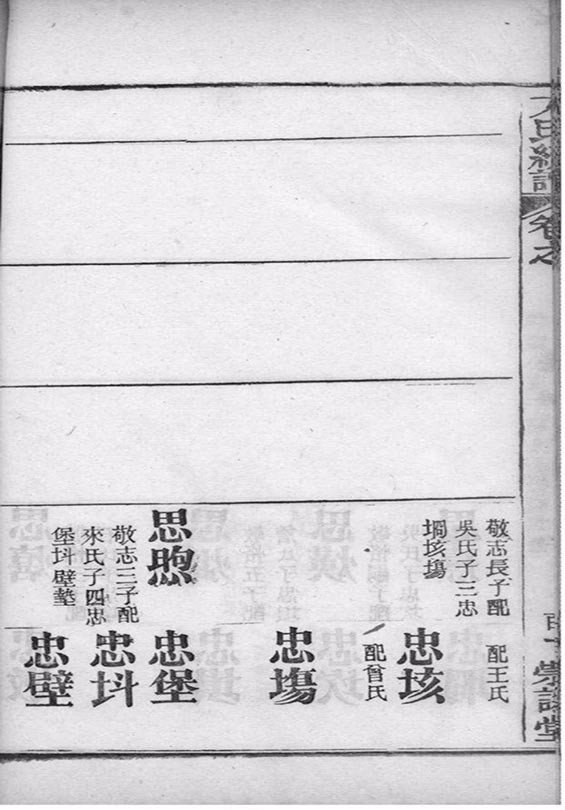 氏總譜
卷之
崇謙堂
敬志長子配
吳氏子三忠
墹垓塲
配王氏
忠垓
配曾氏
忠塲
思煦
敬志三子配
來氏子四忠
堡抖壁墊
忠堡
忠抖
忠壁